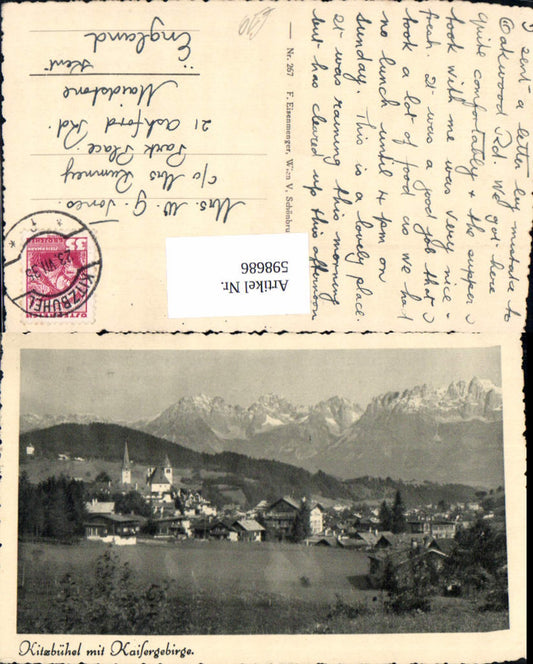 I sent a letter by mistake to
Oakwood Rd. We got here
quite comfortably & the supper I
took with me was very nice -
fresh. It was a good job that I
took a lot of food as we had
no lunch until 4 pm on
Sunday. This is a lovely place.
It was raining this morning
but has cleared up this afternoon
Nr. 267 F. Eisenmenger, Wien V, Schönbru
Mrs. W. G. Jones.
c/o Mrs Rumney
Park Place.
21 Ashford Rd.
Maidstone
Kent
England
KITZBÜHEL
35
GROSCHEN
ÖSTERREICH
Artikel Nr.
598686
Kitzbühel mit Kaisergebirge.